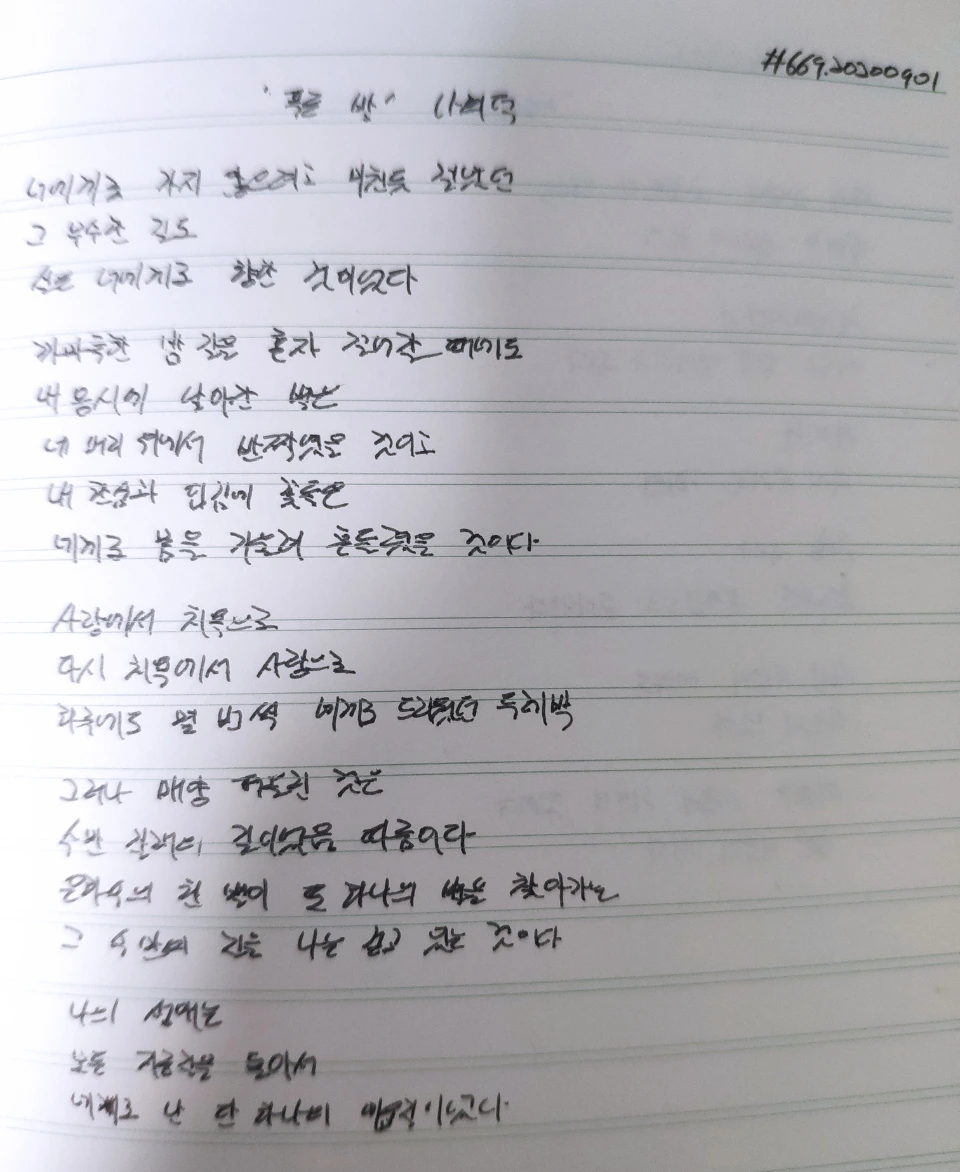 #669.20200901
"푸른 밤" 나희덕
너에게로 가지 않으려고 미친듯 걸었던
그 무수한 길도
실은 너에게로 향한 것이었다
까마득한 밤 길을 혼자 걸어갈 때에도
내 응시에 날아간 별은
네 머리 위에서 반짝였을 것이고
내 한숨과 입김에 꽃들은
네게로 몸을 기울여 흔들렸을 것이다
사랑에서 치욕으로
다시 치욕에서 사랑으로
하루에도 몇 번씩 네게로 드리웠던 두레박
그러나 매양 퍼올린 것은
수만 갈래의 길이었을 따름이다
은하수의 한 별이 또 하나의 별을 찾아가는
그 수만의 길을 나는 걷고 있는 것이다
나의 생애는
모든 지름길을 돌아서
네게로 난 단 하나의 에움길이었다